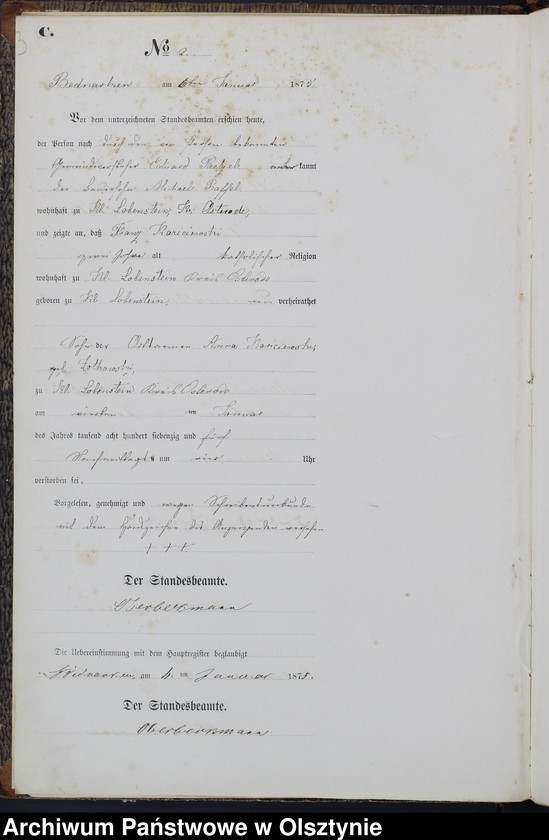 C.
3
No 2.
Bednarken am 6ten Januar 1875.
Vor dem unterzeichneten Standesbeamten erschien heute,
der Person nach durch den von Person bekannten
Gemeindevorsteher Eduard kannt
der Michael
wohnhaft zu Kl. Lobenstein, Kr. Osterode,
und zeigte an, daß Franz
zwei Jahre alt katholischer Religion
wohnhaft zu Kl. Lobenstein Kreis Osterode
geboren zu Kl. Lobenstein, un verheirathet
Sohn der Ortsarmen Anna
geb.
zu Kl. Lobenstein Kreis Osterode
am vierten ten Januar
des Jahres tausend acht hundert siebenzig und fünf
Nachmittags um vier Uhr
verstorben sei.
Vorgelesen, genehmigt und wegen Schreibensunkunde
mit dem Handzeichen des Anzeigenden versehen
+ + +
Der Standesbeamte.
Oberbersmann
Die Uebereinstimmung mit dem Hauptregister beglaubigt
Bednarken, am 6. ten Januar 1875.
Der Standesbeamte.
Oberbersmann
Archiwum Państwowe w Olsztynie